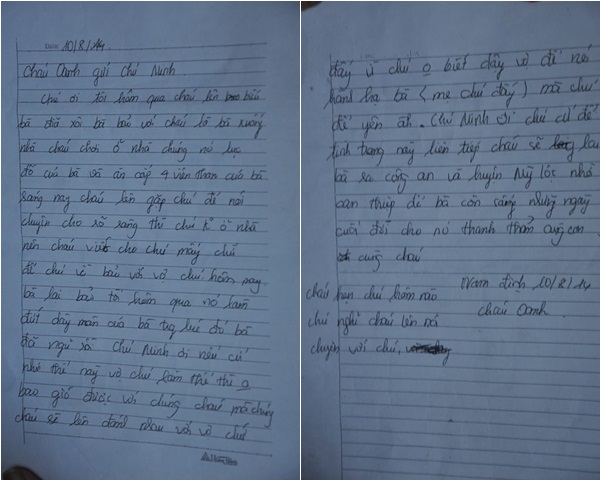 Date: 10/8/14.
Cháu Oanh gửi Chú Ninh
Chú ơi tối hôm qua cháu lên biếu
bà đĩa xôi bà bảo với cháu là bà xuống
nhà cháu chơi ở nhà chúng nó lục
đồ của bà và ăn cắp 4 viên than của bà
sáng nay cháu lên gặp chú để nói
chuyện cho rõ ràng thì chú k ở nhà
nên cháu viết cho chú mấy chữ
để chú về bảo với vợ chú hôm nay
bà lại bảo tối hôm qua nó làm
đứt dây màn của bà trg lúc đó bà
đã ngủ rồi. Chú Ninh ơi nếu cứ
như thế này vợ chú làm thế thì o
bao giờ được với chúng cháu mà chúng
cháu sẽ lên đánh nhau với vợ chú
đấy vì chú o biết dậy vợ để nó
hành hạ bà (mẹ chú đấy) mà chú
để yên ah. Chú Ninh ơi chú cứ để
tình trạng này liên tiếp cháu sẽ lai
bà ra công an và huyện Mỹ Lộc nhờ
can thiệp để bà còn sống những ngày
cuối đời cho nó thanh thản cùng con
cùng cháu
Nam Định 10/8/14
Cháu Oanh
cháu hẹn chú hôm nào
chú nghỉ cháu lên nói
chuyện với chú,